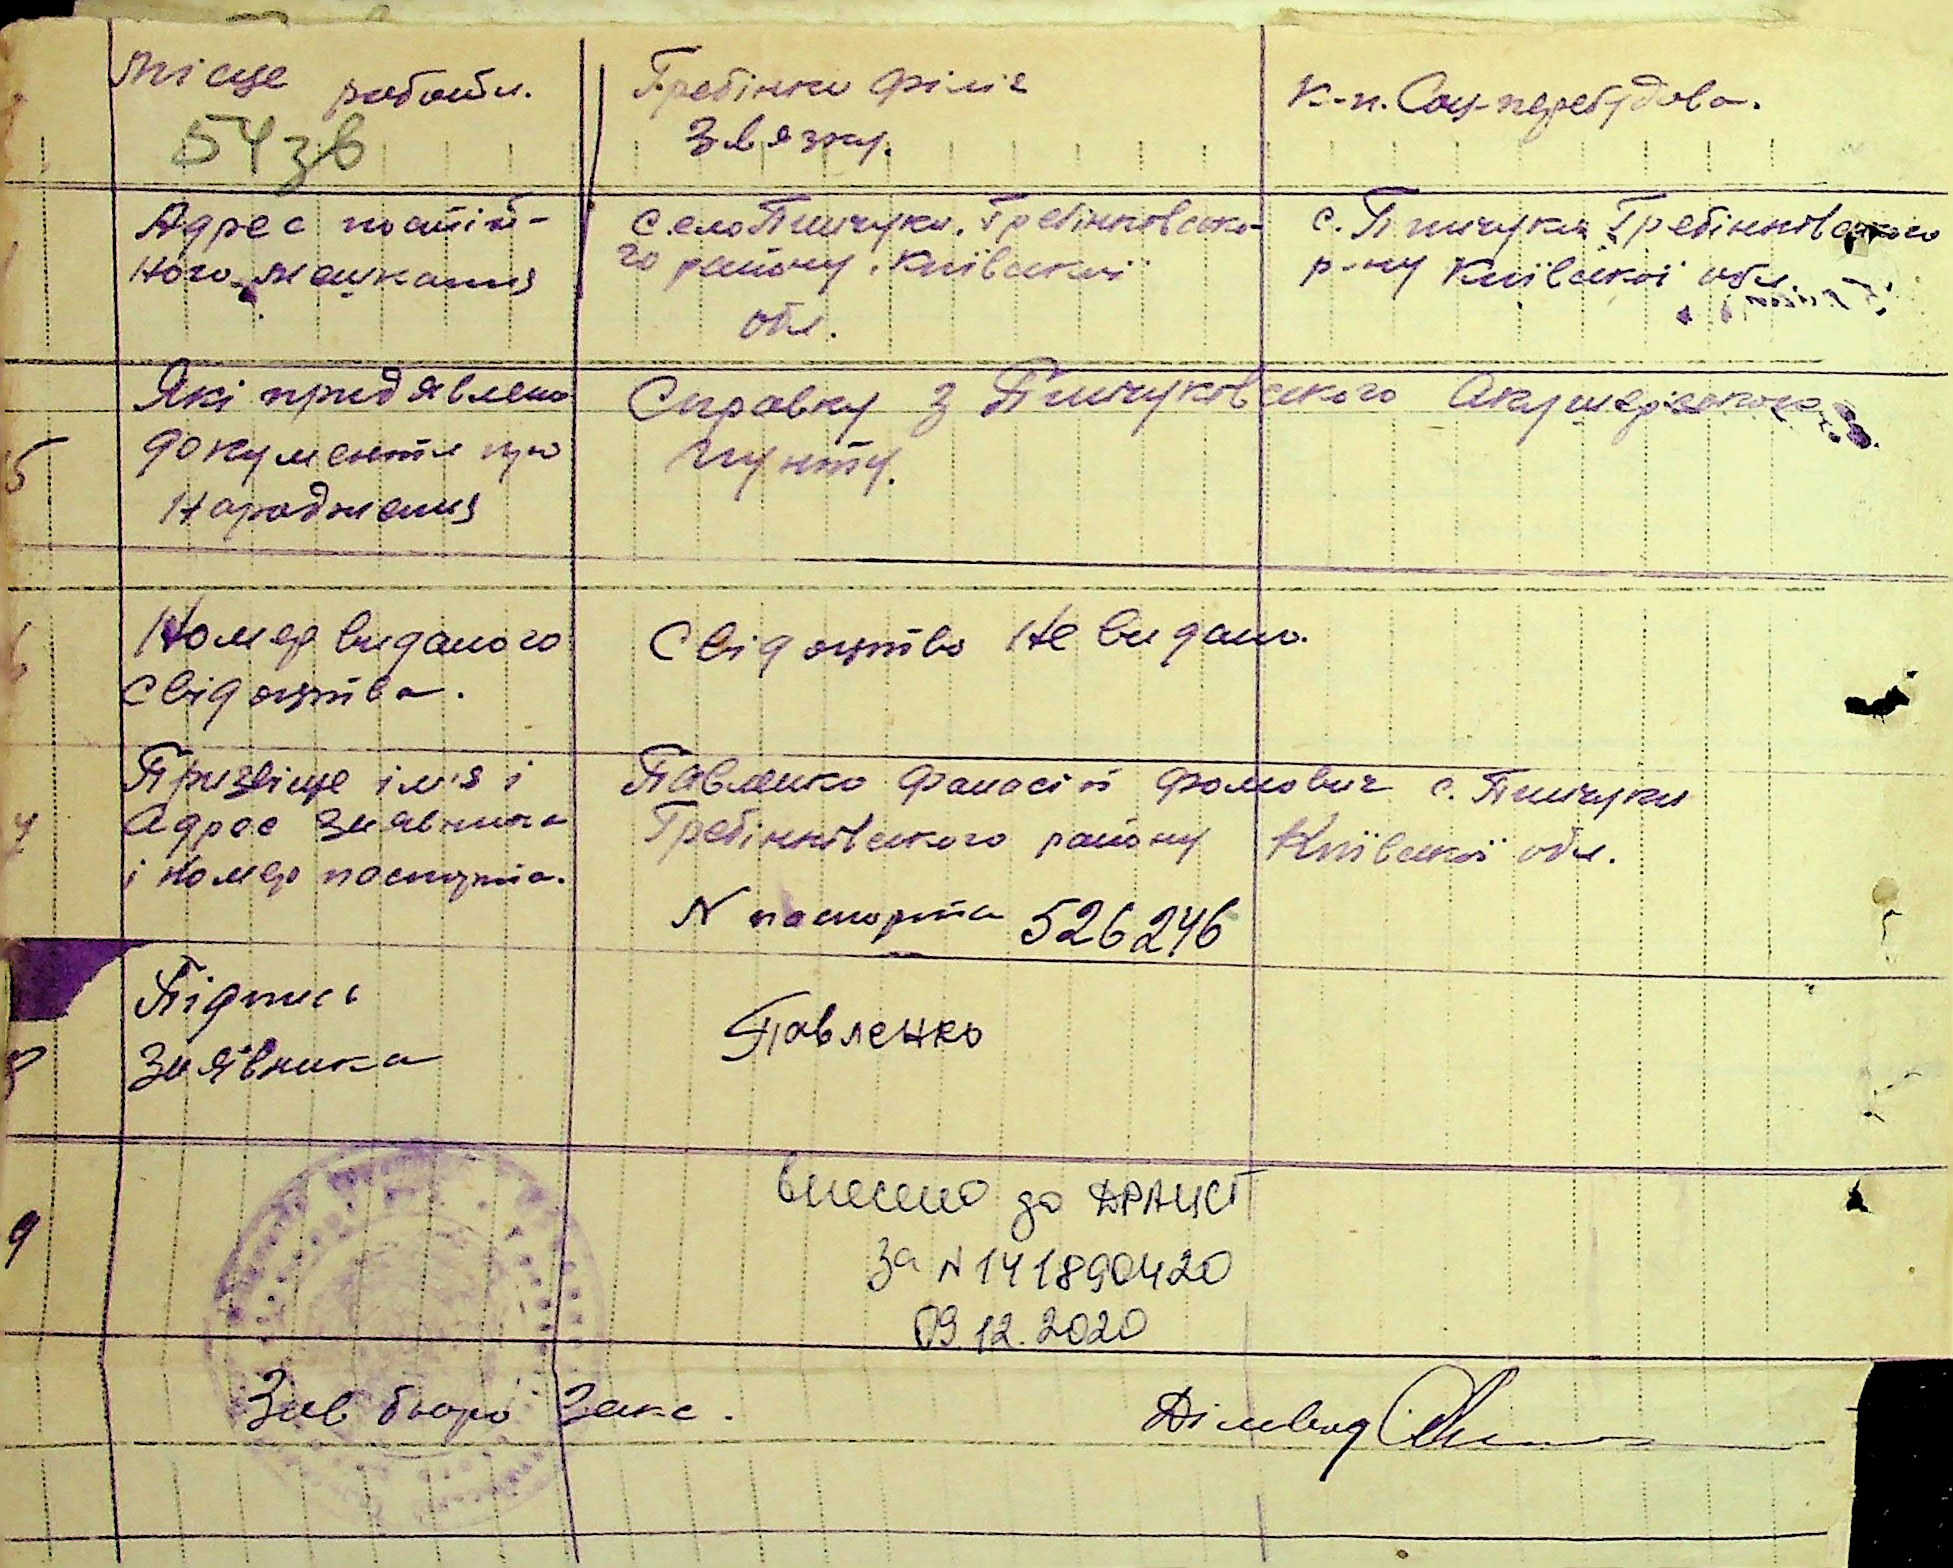 Місце роботи.
54зв
Гребінки філія
Звязку.
к-п. Соц-перебудова.
Адрес постій-
ного мешкания
Село Пінчуки. Гребінківсько-
го району. Київської
обл.
с. Пінчуки Гребінківського
р-ну Київської обл.
5
Які придявлено
документи про
народження
Справку з Пінчуківського Акушерського
пункту.
6
Номер виданого
свідоцтва.
Свідоцтво не видано.
7
Призвіще ім'я і
Адрес заявника
і номер паспорта.
Павленко Фанасій Фомович с. Пінчуки
Гребінківського району Київської обл.
N паспорта 526246
8
Підпись
Заявника
Павленко
9
внесено до ДРАЦСГ
за N 141890420
09.12.2020
Зав бюро Загс.